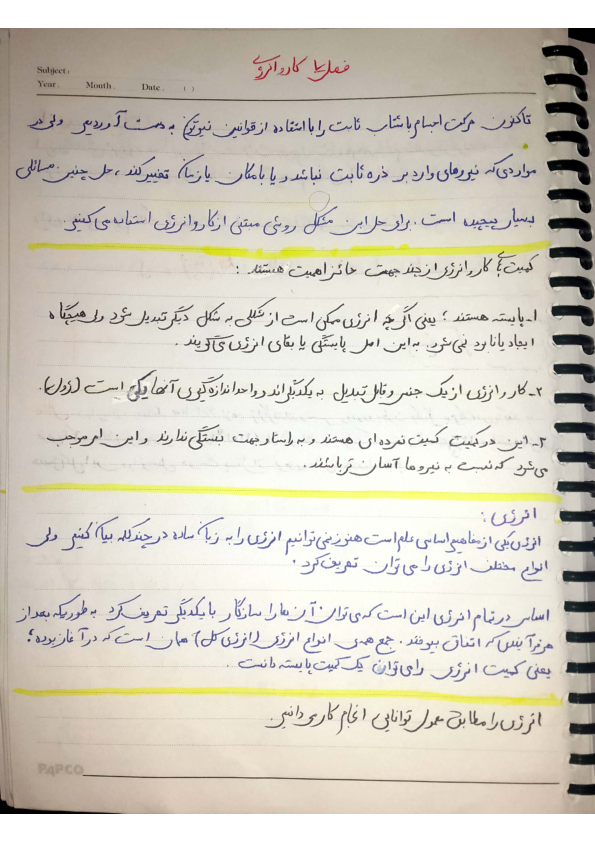 Subject:
Year. Month. Date. ( )
فصل ۷ کار و انرژی
تاکنون حرکت اجسام با شتاب ثابت را با استفاده از قوانین نیوتن به دست آوردیم ولی در
مواردی که نیروهای وارد بر ذره ثابت نباشد و یا با مکان یا زمان تغییر کند، حل چنین مسائلی
بسیار پیچیده است. برای حل این مشکل روشی مبتنی از کار و انرژی استفاده می کنیم.
کمیت های کار و انرژی از چند جهت حائز اهمیت هستند:
۱- پایسته هستند؛ یعنی اگر چه انرژی ممکن است از شکلی به شکل دیگر تبدیل شود ولی هیچگاه
ایجاد یا نابود نمی شود. به این اصل پایستگی یا بقای انرژی می گویند.
۲- کار و انرژی از یک جنس و قابل تبدیل به یکدیگراند و واحد اندازه گیری آنها یکی است (ژول).
۳- این دو کمیت کمیت نرده ای هستند و به راستا و جهت بستگی ندارند و این امر موجب
می شود که نسبت به نیروها آسان تر باشند.
انرژی:
انرژی یکی از مفاهیم اساسی علم است هنوز نمی توانیم انرژی را به زبان ساده در چند کلمه بیان کنیم ولی
انواع مختلف انرژی را می توان تعریف کرد.
اساس در تمام انرژی این است که می توان آن ها را سازگار با یکدیگر تعریف کرد به طوریکه بعد از
هر فرآیندی که اتفاق بیوفتد. جمع همه ی انواع انرژی (انرژی کل) همان است که در آغاز بوده؛
یعنی کمیت انرژی را می توان یک کمیت پایسته دانست.
انرژی را مطابق معمول توانایی انجام کار می دانیم.
PAPCO